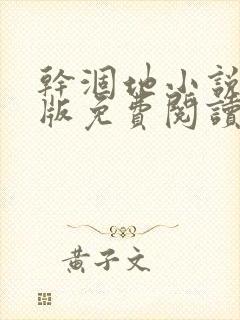 幹涸地小說
版免費閱讀
黃子文